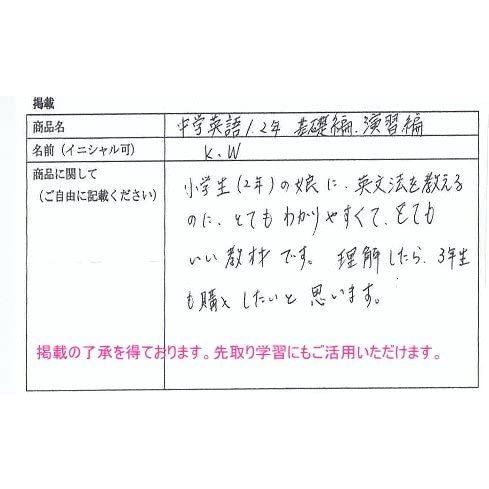 掲載
商品名 中学英語1.2年 基礎編.演習編
名前(イニシャル可) K.W
商品に関して
(ご自由に記載ください)
小学生(2年)の娘に、英文法を教える
のに、とてもわかりやすくて、とても
いい教材です。理解したら、3年生
も購入したいと思います。
掲載の了承を得ております。先取り学習にもご活用いただけます。